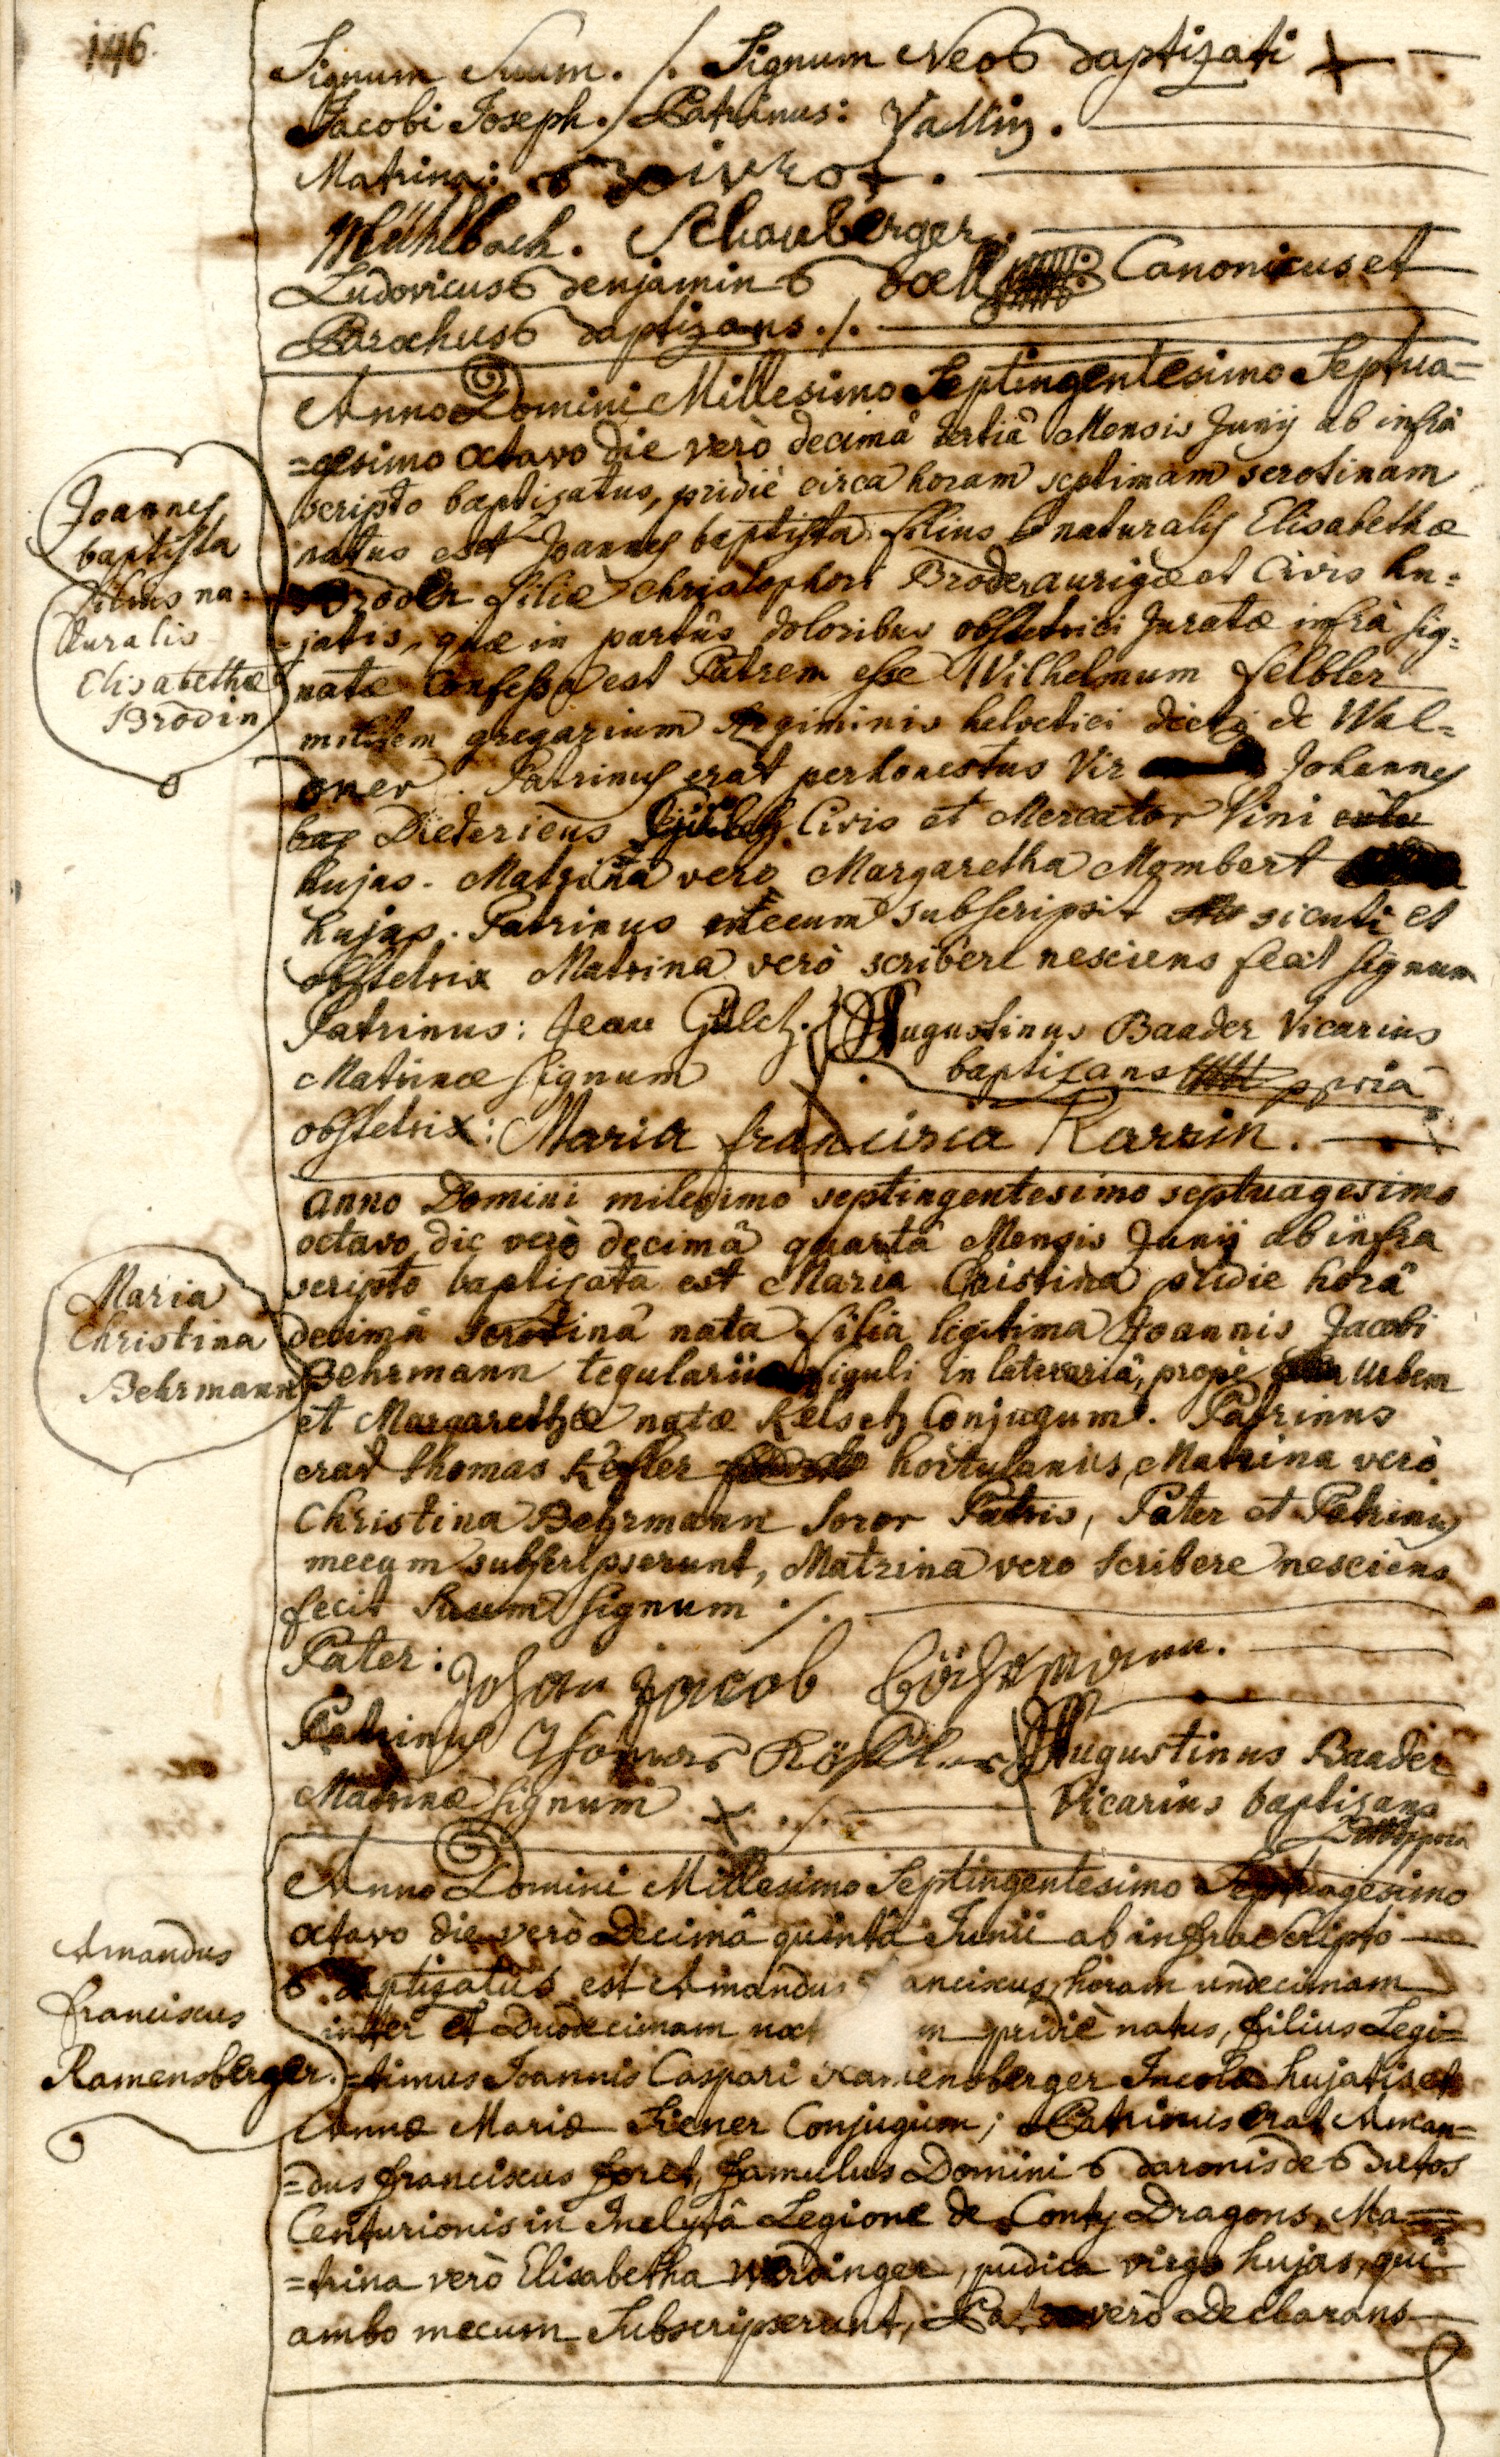 146.
Signum Suum. /. Signum Neo Baptizati +
Jacobi Joseph. / Patrinus: Vallin.
Matrina:
Mühlbach. Schauberger.
Ludovicus Benjamin Boell Canonicus et
Parochus Baptizans ./.
Anno Domini Millesimo Septingentesimo Septua=
=gesimo octavo die verò decimâ tertiâ Mensis Junij ab infrà
scripto baptizatus, pridiè circa horam septimam serotinam
natus est Joannes baptista filius naturalis Elisabethæ
Broder filiæ Christophori Broder aurigæ et Civis hu=
=jatis, quæ in partûs doloribus obstetrici Juratæ infrà sig=
natæ Confessa est Patrem esse Wilhelmum felbler
militem gregarium Regiminis helvetici dicti de Wal=
dner. Patrinus erat perhonestus Vir Johannes
bap Dietericus Civis et Mercator Vini
hujas. Matrina vero Margaretha Mombert
hujas. Patrinus mecum subscripsit sicuti et
obstetrix Matrina verò scribere nesciens fecit signum
Patrinus: Jean Gülch. Augustinus Baader Vicarius
Matrinæ signum + baptizans ppriâ
obstetrix: Maria francisca Karrin.
anno Domini milesimo septingentesimo septuagesimo
octavo die verò decimâ quartâ Mensis Junij ab infra
scripto baptizata est Maria Christina pridie horâ
decimâ serotinâ nata filia legitima Joannis Jacobi
Behrmann tegularii figuli in laterariâ, propè Urbem
et Margarethæ natæ Kelsch Conjugum. Patrinus
erat thomas Keßler hortulanus, Matrina verò
Christina Behrmann soror Patris, Pater et Patrinus
mecum subscripserunt, Matrina vero scribere nesciens
fecit suum signum ./.
Pater: Johan Jacob Börhmann.
Patrinus Thomas Augustinus Baader
Matrinæ signum + ./. Vicarius baptizans
Anno Domini Millesimo Septingentesimo Septuagesimo
octavo die verò Decimâ quintâ Junii ab infrascripto
Baptizatus est Amandus anciscus, horam undecimam
inter et Duodecimam noct m pridiè natus, filius Legi=
=timus Joannis Caspari Ramensberger Incolæ hujatis et
Annæ Mariæ Siener Conjugum; Patrinus erat Aman=
=dus franciscus foret, famulus Domini Baronis de
Centurionis in Inclytâ Legione de Conty Dragons, Ma=
=trina verò Elisabetha Werdinger, pudica virgo hujas, qui
ambo mecum Subscripserunt, Pater verò Declarans
Joannes
baptista
filius na=
turalis
Elisabethæ
Brodin
Maria
Christina
Behrmann
Amandus
franciscus
Ramensberger.